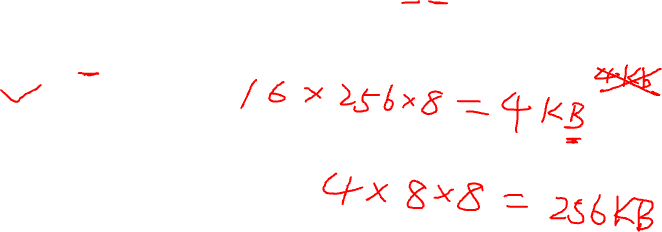 16×256×8=4KB
4×8×8=256KB